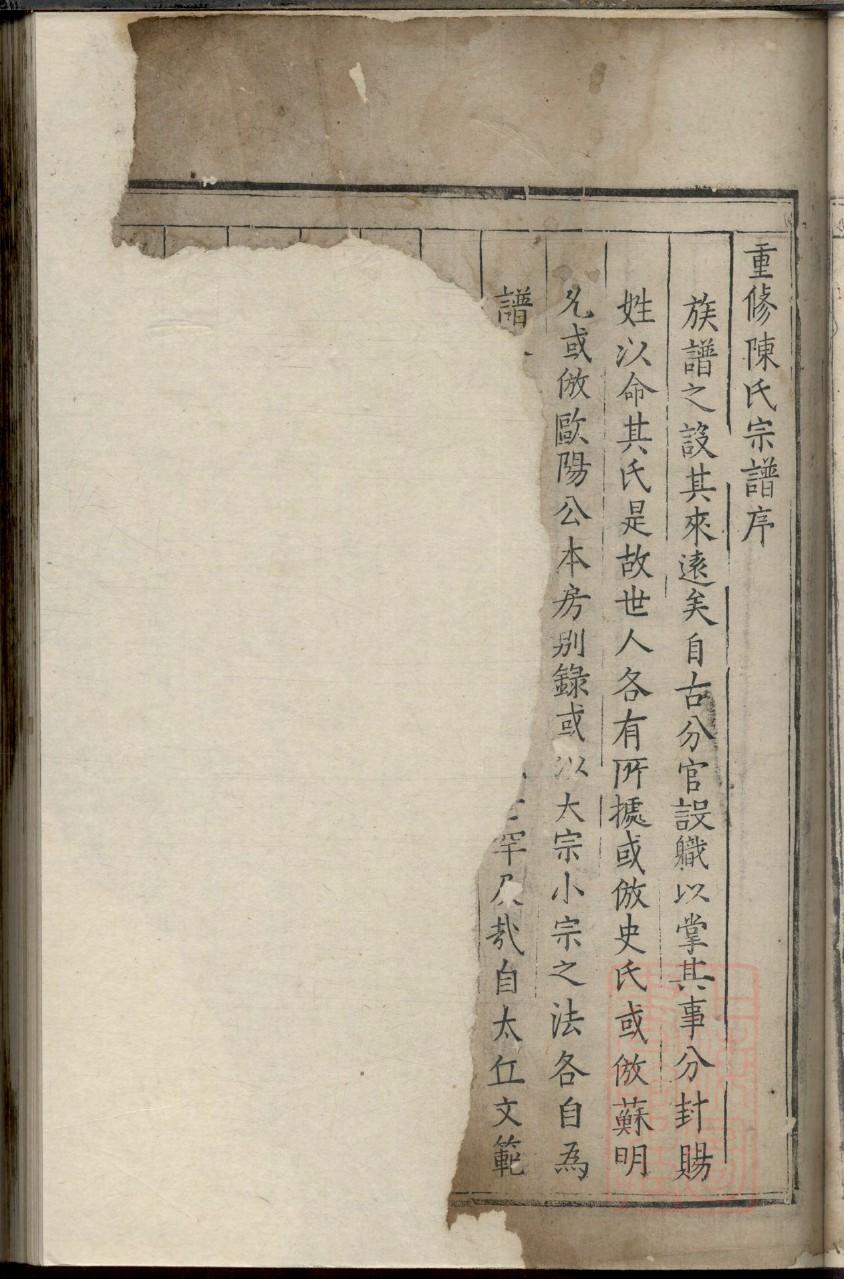 重修陳氏宗譜序
族譜之設其來遠矣自古分官設職以掌其事分封賜
姓以命其氏是故世人各有所據或倣史氏或倣蘇明
允或倣歐陽公本房别錄或以大宗小宗之法各自為
譜 罕及哉自太丘文範